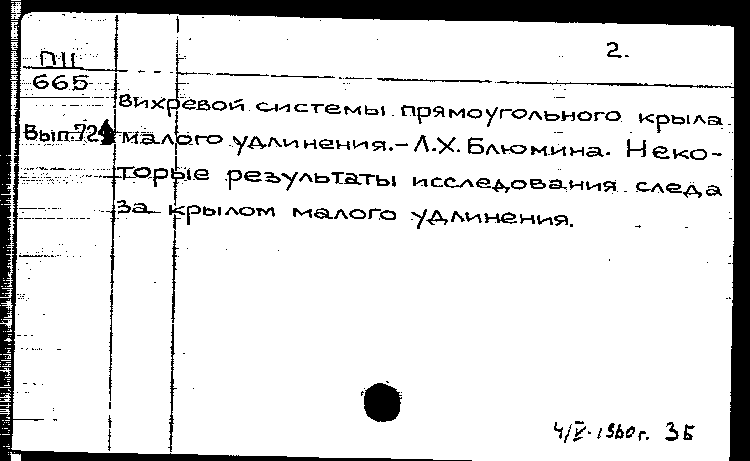 2.
П11
665
Вып.72
вихревой системы прямоугольного крыла
малого удлинения.-Л.Х.Блюмина. Неко-
торые результаты исследования следа
за крылом малого удлинения.
4/V-1960г. ЗБ